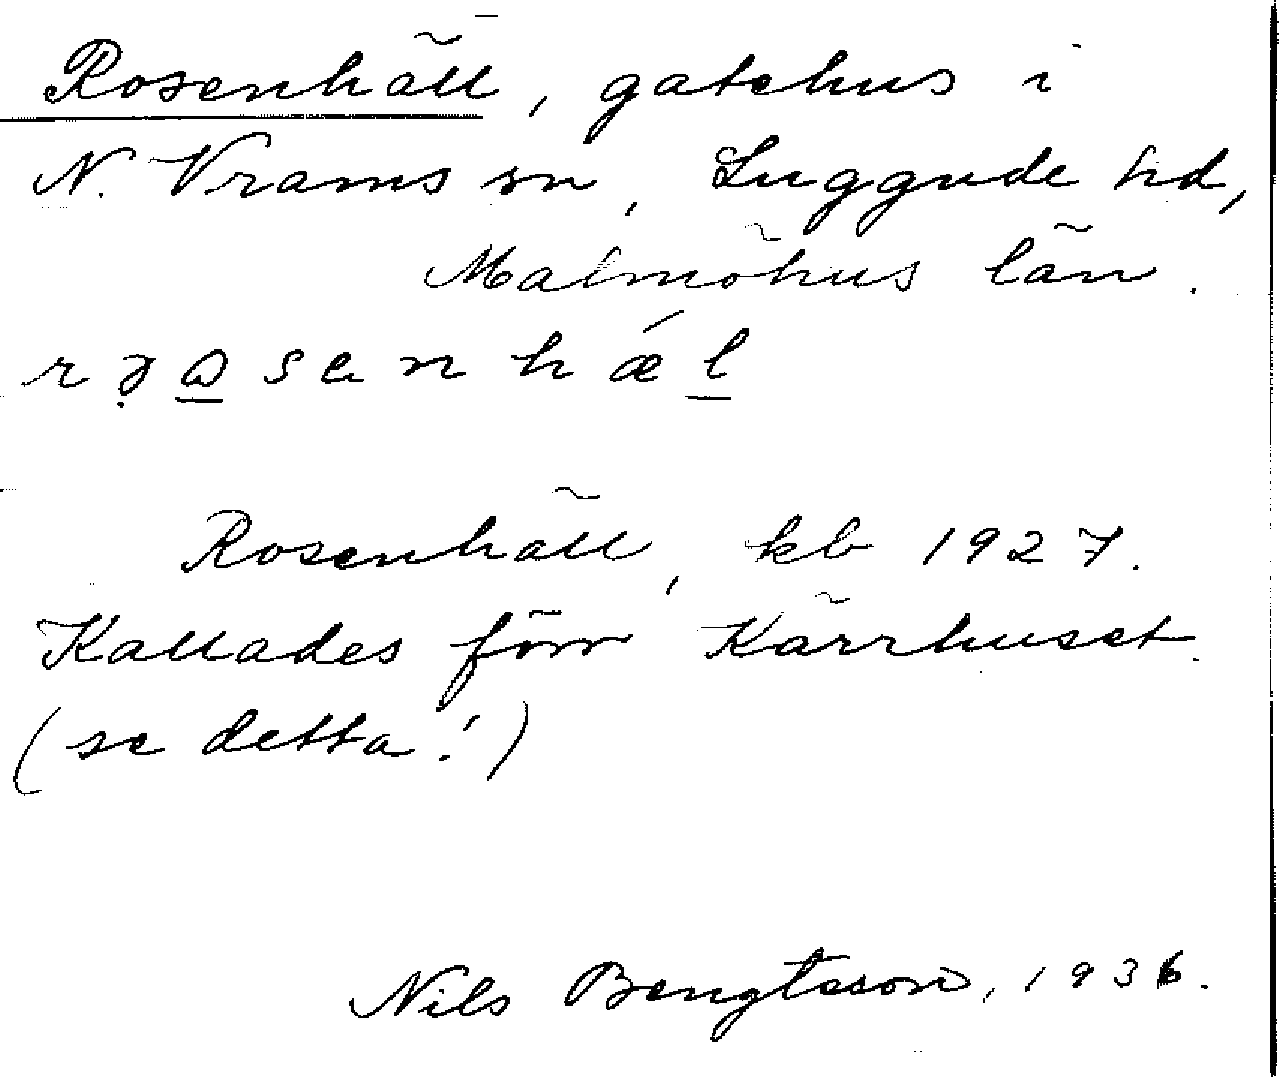 Rosenhäll, gatehus i
N. Vrams sn, Luggude hd,
Malmöhus län.
Rosenhäll, kb 1927.
Kallades förr Kärrhuset.
(se detta!)
Nils Bengtsson, 1936.